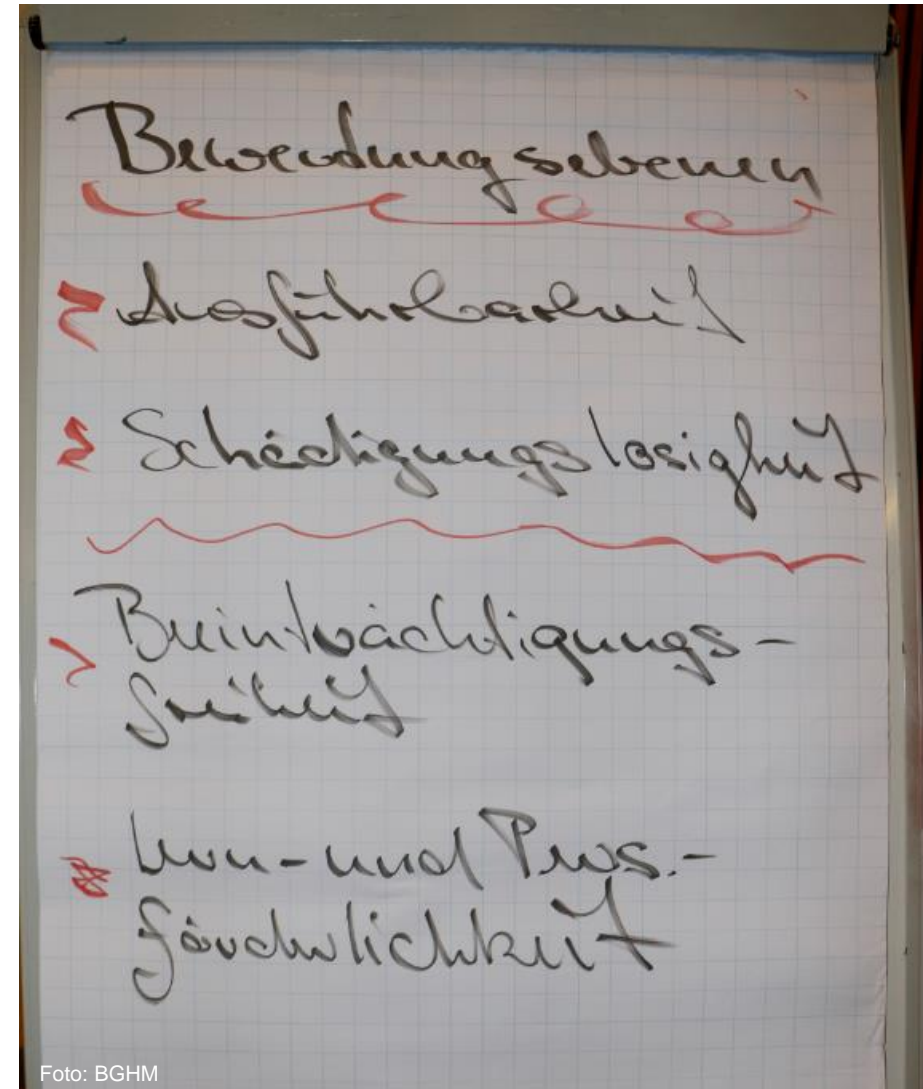 Bewertungsebenen
Ausführbarkeit
Schädigungslosigkeit
Beeinträchtigungs-
freiheit
Lern- und Pers.-
förderlichkeit
Foto: BGHM